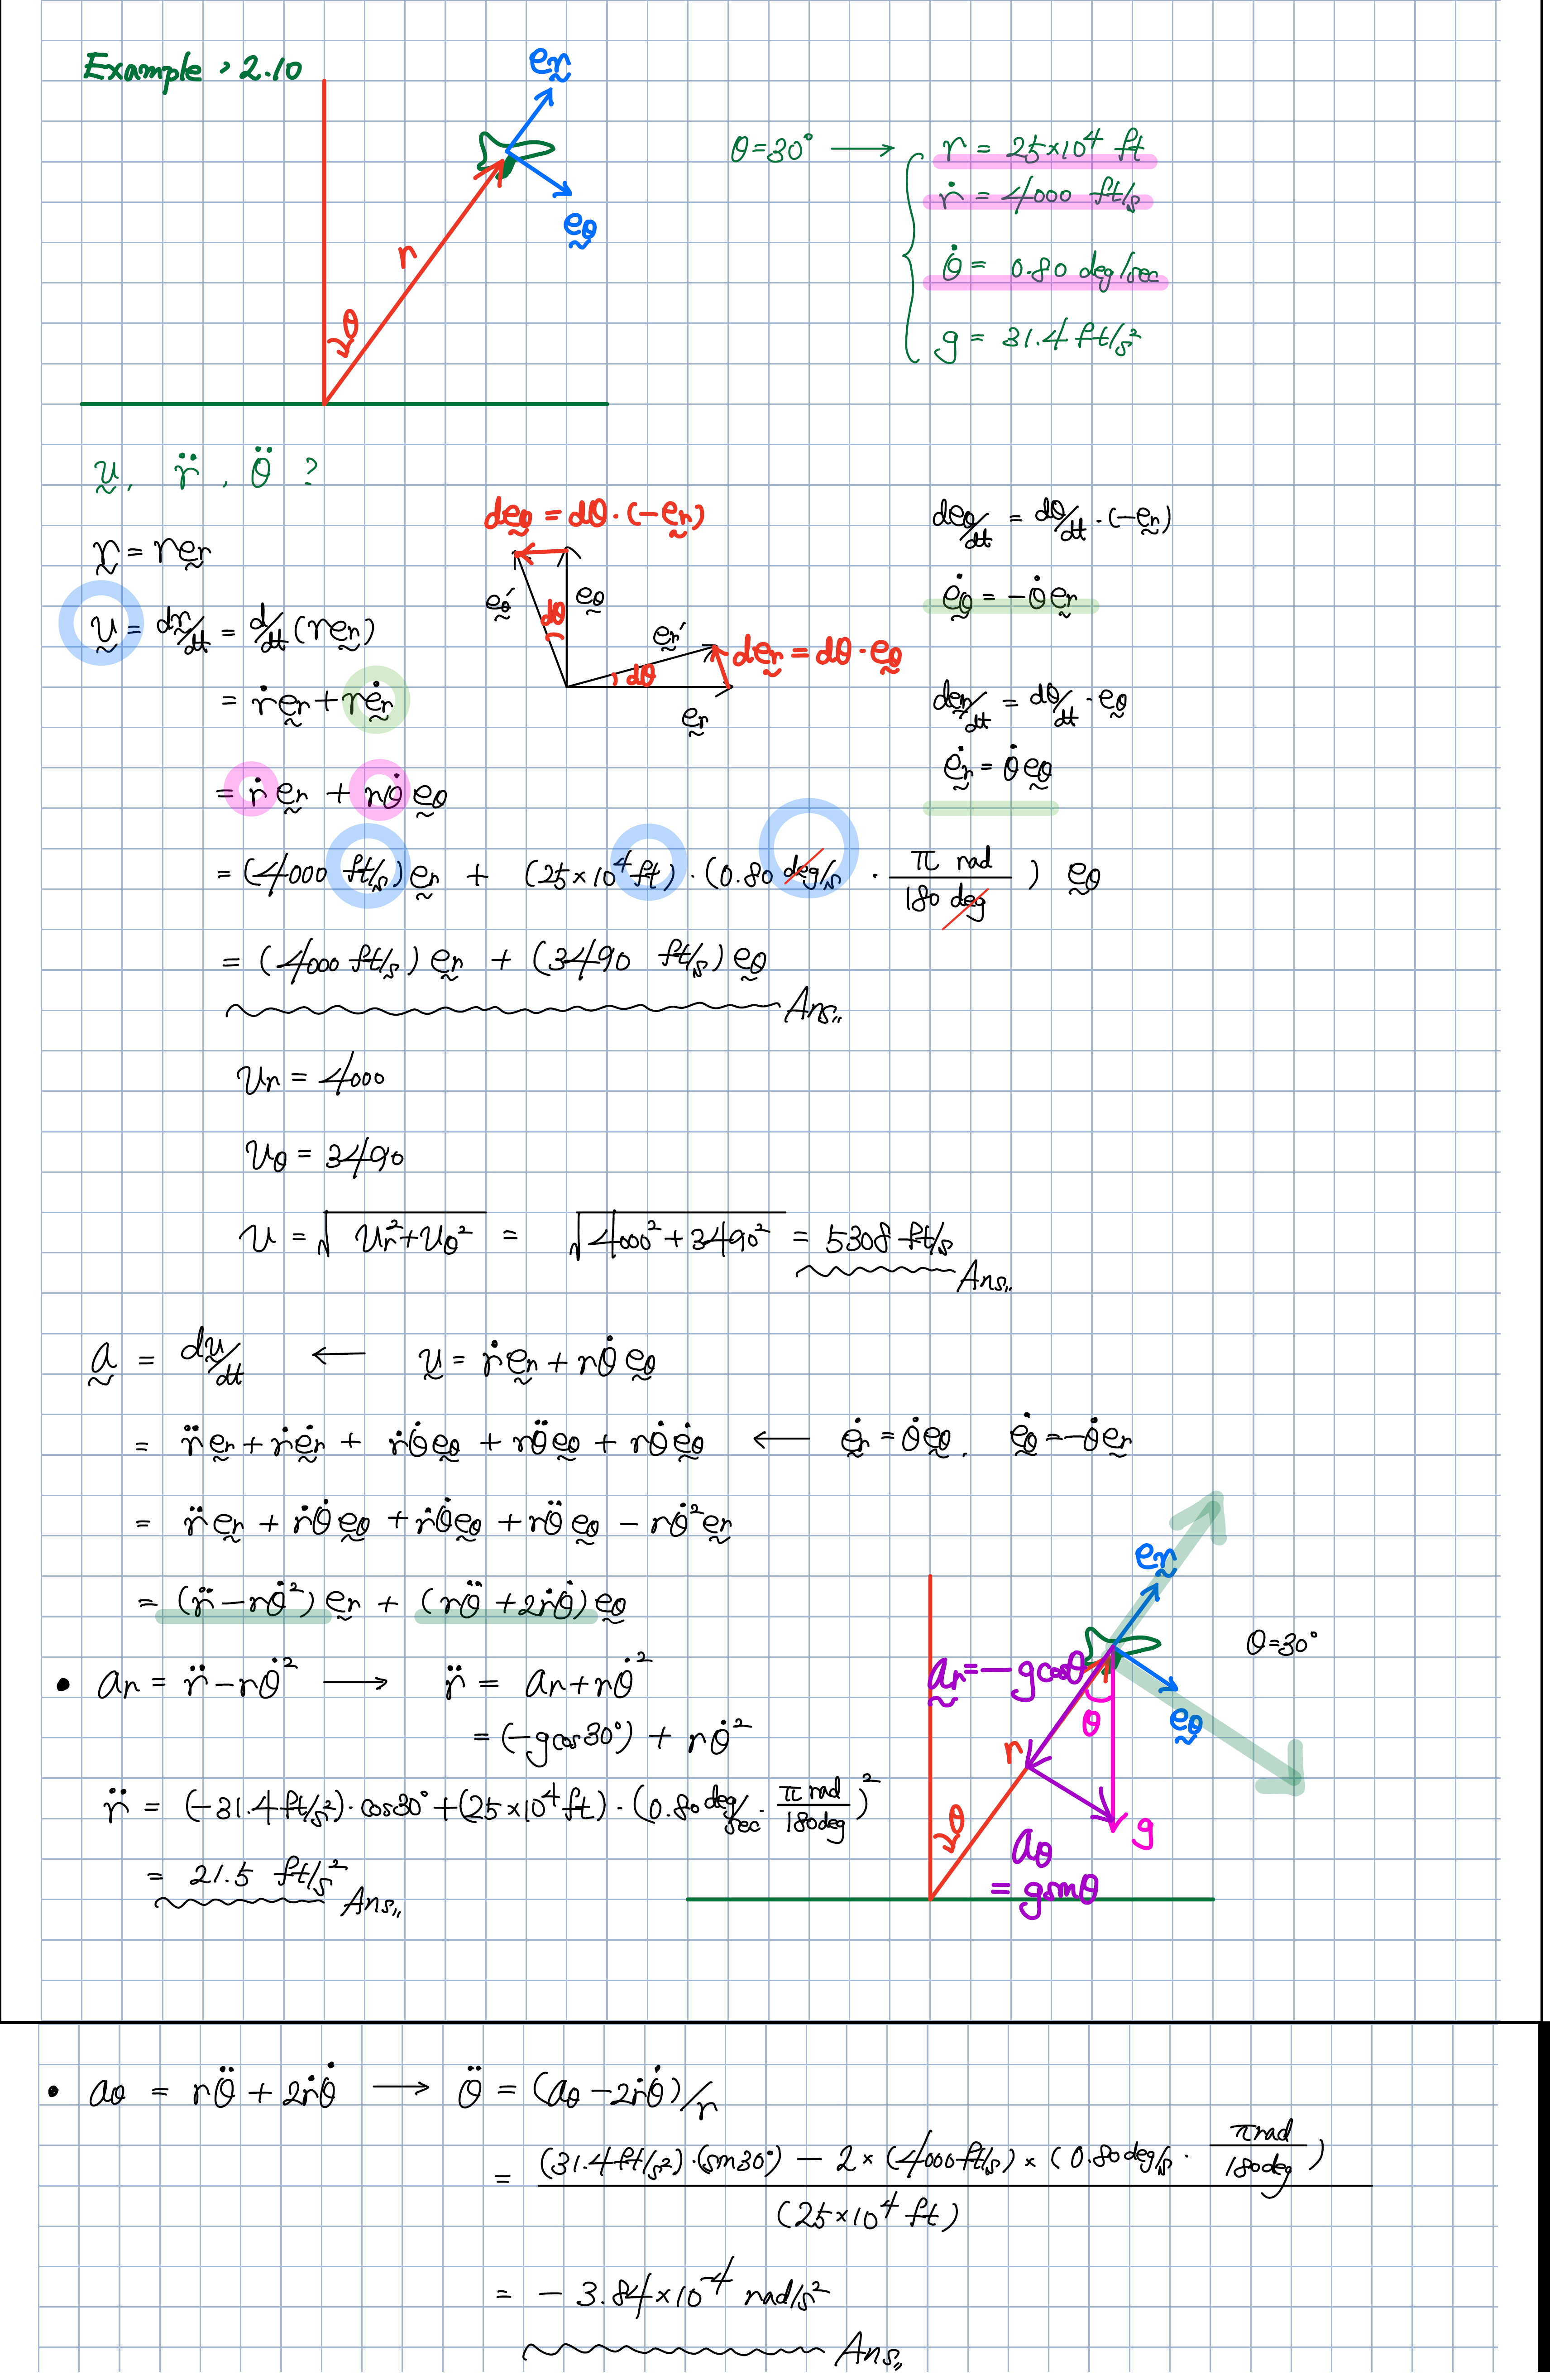 Example > 2.10
er
eθ
r
θ
θ=30° → { r = 25×10⁴ ft
ṙ = 4000 ft/s
θ̇ = 0.80 deg/sec
g = 31.4 ft/s²
v, r̈, θ̈ ?
r = r er
v = dr/dt = d/dt (r er)
= ṙ er + r ėr
= ṙ er + rθ̇ eθ
deθ = dθ·(-er)
eθ'
dθ
eθ
er'
dθ
der = dθ·eθ
er
deθ/dt = dθ/dt·(-er)
ėθ = -θ̇ er
der/dt = dθ/dt·eθ
ėr = θ̇ eθ
= (4000 ft/s) er + (25×10⁴ ft)·(0.80 deg/s · π rad / 180 deg) eθ
= (4000 ft/s) er + (3490 ft/s) eθ
Ans.,
vr = 4000
vθ = 3490
v = √(vr²+vθ²) = √(4000²+3490²) = 5308 ft/s
Ans.,
a = dv/dt ← v = ṙ er + rθ̇ eθ
= r̈ er + ṙ ėr + ṙθ̇ eθ + rθ̈ eθ + rθ̇ ėθ ← ėr = θ̇ eθ, ėθ = -θ̇ er
= r̈ er + ṙθ̇ eθ + ṙθ̇ eθ + rθ̈ eθ - rθ̇² er
= (r̈ - rθ̇²) er + (rθ̈ + 2ṙθ̇) eθ
• ar = r̈ - rθ̇² → r̈ = ar + rθ̇²
= (-g cos30°) + rθ̇²
r̈ = (-31.4 ft/s²)·cos30° + (25×10⁴ ft)·(0.80 deg/sec · π rad / 180 deg)²
= 21.5 ft/s²
Ans.,
er
θ=30°
ar = -g cosθ
θ
eθ
r
g
θ
aθ
= g sinθ
• aθ = rθ̈ + 2ṙθ̇ → θ̈ = (aθ - 2ṙθ̇)/r
= (31.4 ft/s²)·(sin30°) - 2×(4000 ft/s)×(0.80 deg/s · π rad / 180 deg)
(25×10⁴ ft)
= -3.84×10⁻⁴ rad/s²
Ans.,